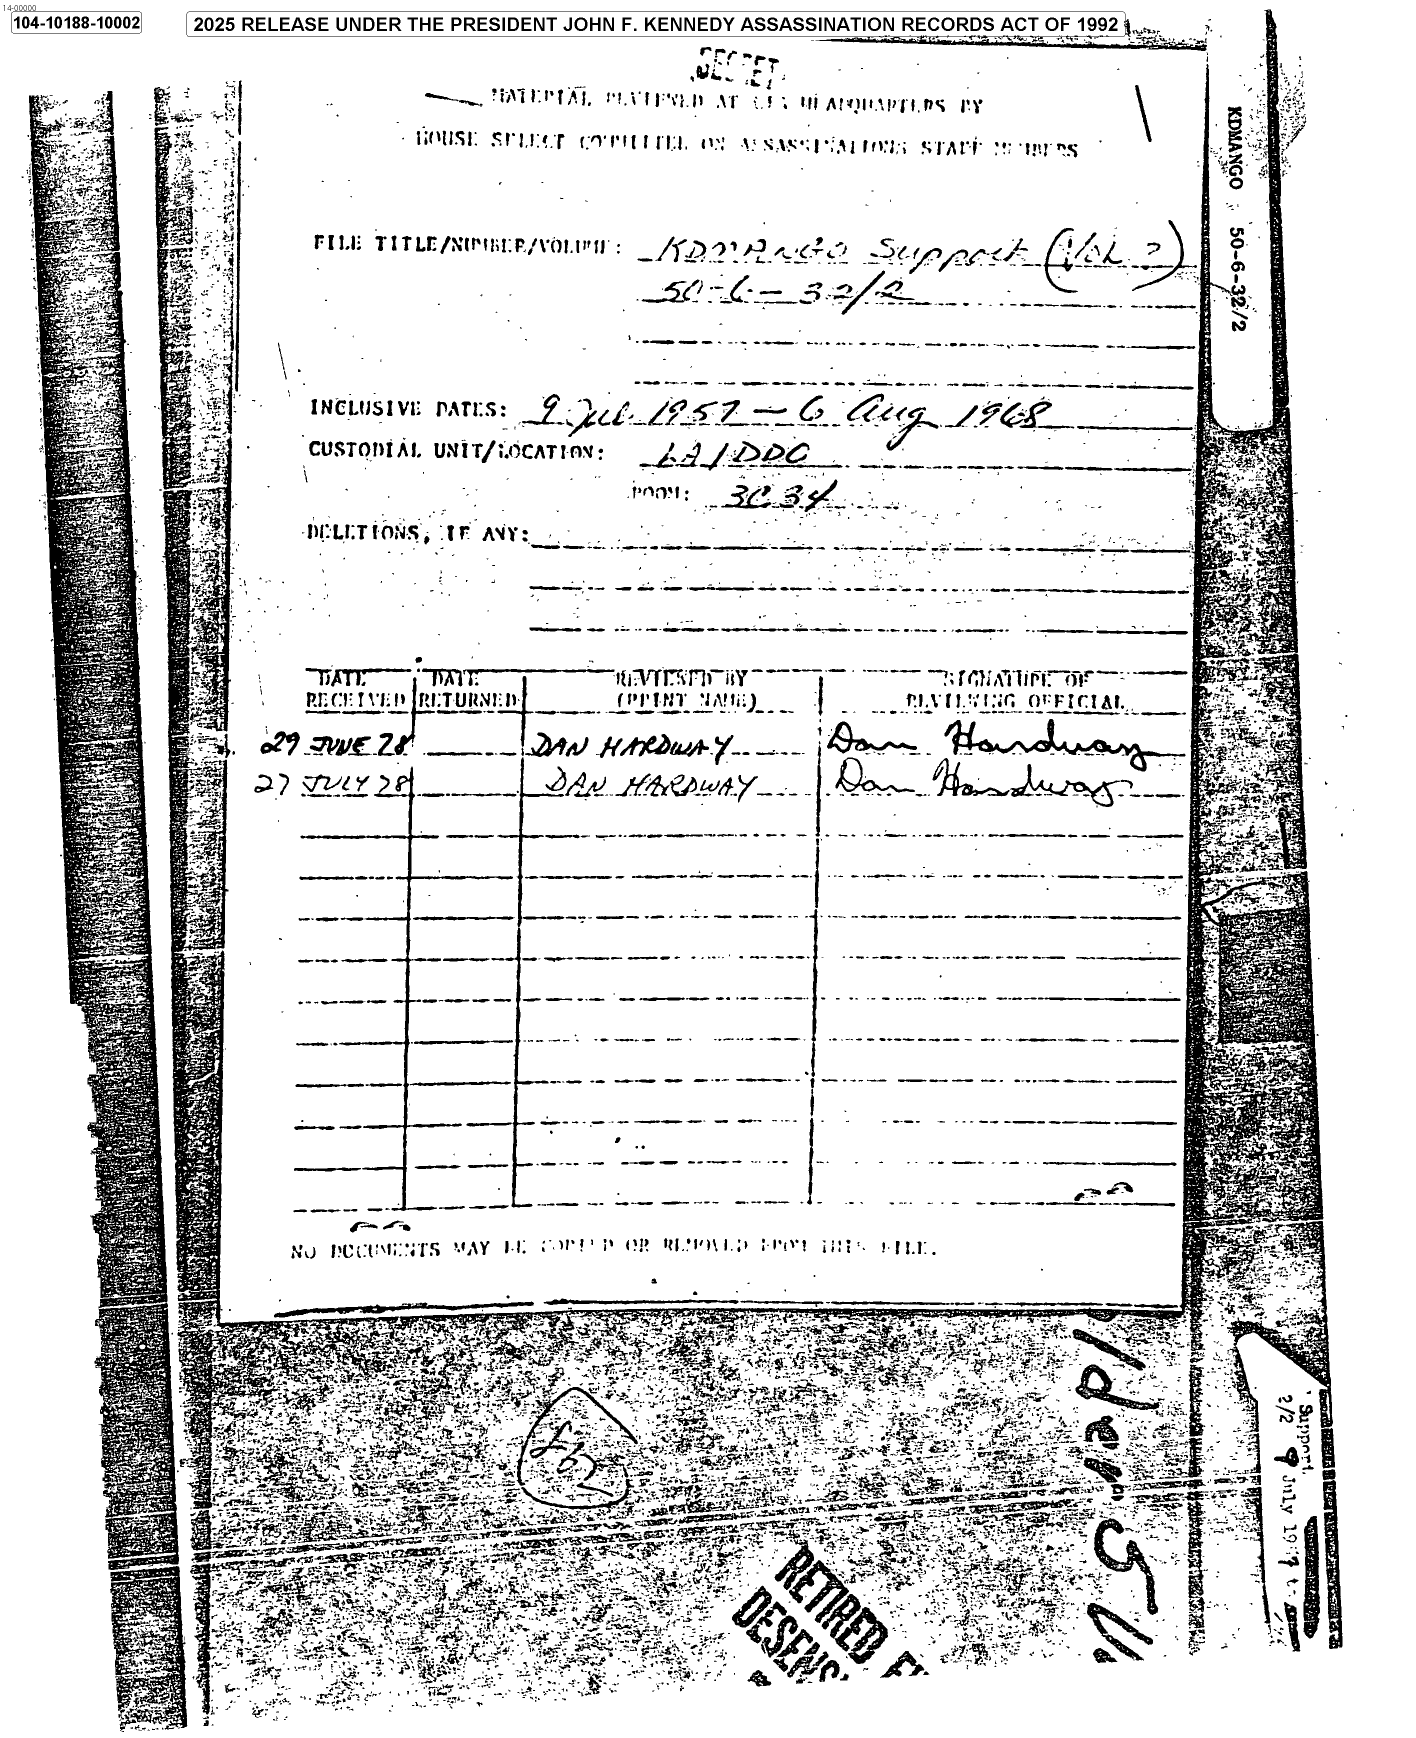 14-00000
104-10188-10002
2025 RELEASE UNDER THE PRESIDENT JOHN F. KENNEDY ASSASSINATION RECORDS ACT OF 1992
SECRET
MATERIAL REVIEWED AT CIA HEADQUARTERS BY
HOUSE SELECT COMMITTEE ON ASSASSINATIONS STAFF MEMBERS
FILE TITLE/NUMBER/VOLUME: KDMANGO Support (Vol
50-6-32/2
INCLUSIVE DATES: 9 Jul 1957 — 6 Aug 1968
CUSTODIAL UNIT/LOCATION: LA/DDO
ROOM: 3C34
DELETIONS, IF ANY:
DATE RECEIVED DATE RETURNED REVIEWED BY (PRINT NAME) SIGNATURE OF REVIEWING OFFICIAL
29 JUNE 78 DAN HARDWAY Dan Hardway
27 JULY 78 DAN HARDWAY Dan Hardway
NO DOCUMENTS MAY BE COPIED OR REMOVED FROM THIS FILE.
KDMANGO 50-6-32/2
Support
2/2 9 July
RETIRED